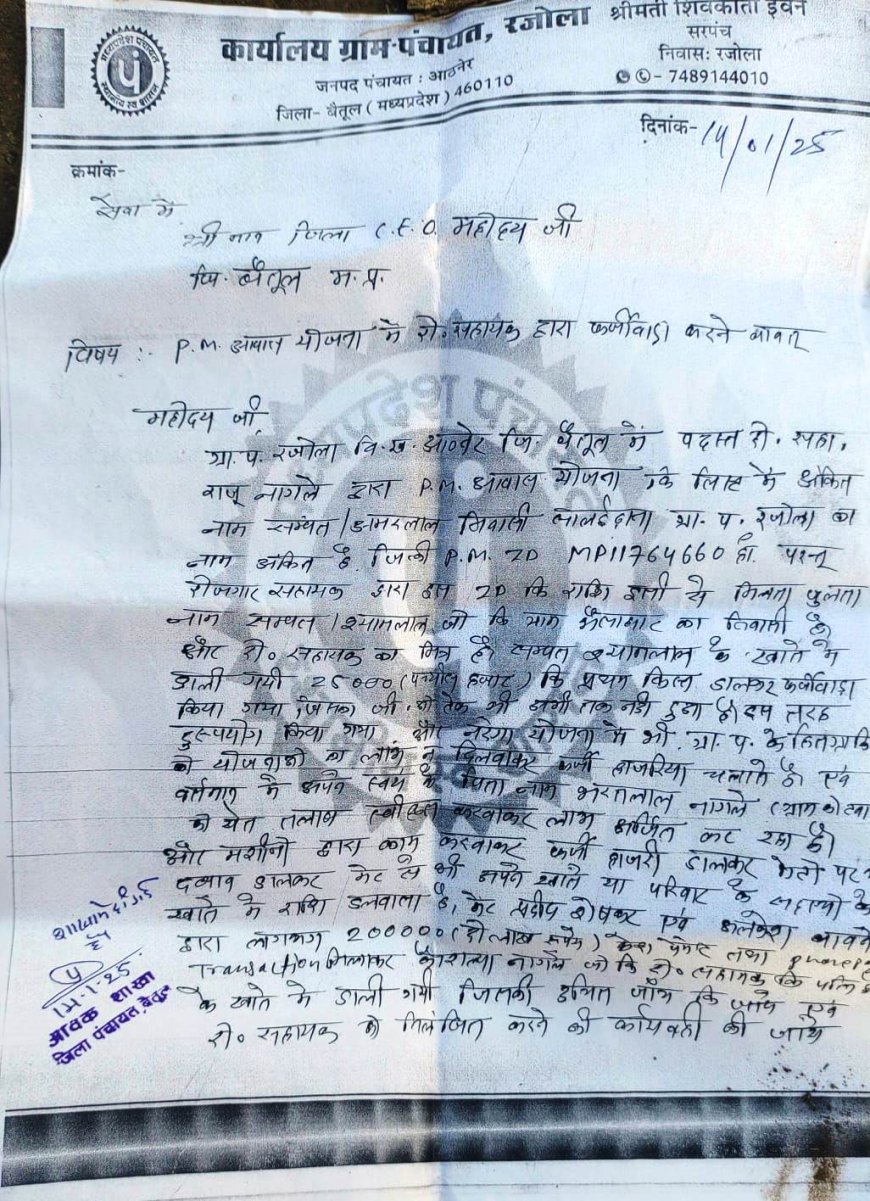 कार्यालय ग्राम-पंचायत, रजोला
जनपद पंचायत : आठनेर
जिला- बैतूल ( मध्यप्रदेश ) 460110
श्रीमती शिवकांता इवने
सरपंच
निवास: रजोला
- 7489144010
दिनांक- 14/01/25
क्रमांक-
सेवा में
श्री मान जिला C.E.O. महोदय जी
जि. बैतूल म.प्र.
विषय :- P.M. आवास योजना में रो. सहायक द्वारा फर्जीवाडा करने बावत्
महोदय जी,
ग्रा.प. रजोला वि.ख. आठनेर जि. बैतूल में पदस्त रो. सहा.
राजू नागले द्वारा P.M. आवास योजना कि लिस्ट में अंकित
नाम सम्पत / अमरलाल निवासी ग्रा. प. रजोला का
नाम अंकित है. जिसकी P.M. ID MP11764660 है. परन्तू
रोजगार सहायक द्वारा इस ID कि राशि इसी से मिलता जुलता
नाम सम्पत / श्यामलाल जो कि ग्राम का निवासी है
और रो० सहायक का मित्र है। सम्पत श्यामलाल के खाते में
डाली गयी 25000 (पच्चीस हजार) कि प्रथम किस्त डालकर फर्जीवाडा
किया गया जिसका भी अभी तक नही हुआ है। इस तरह
दुरूपयोग किया गया और नरेगा योजना में भी ग्रा. प. के
को योजनाओ का लाभ न दिलवाकर फर्जी हाजरिया चलाते है एवं
वर्तमान में अपने स्वयं के पिता नाम नागले
को खेत तलाब स्वीकृत करवाकर लाभ अर्जित कर रहा है।
और मशीनो द्वारा काम करवाकर फर्जी हाजरी डालकर मेटो पर
दबाव डालकर मेट से भी अपने खाते या परिवार के सदस्यो के
खाते में राशि डलवाता है, मेट एवं
द्वारा लगभग 200000 (दो लाख रूपये) तथा phonepe
Transaction मिलाकर कौशल्या नागले जो कि रो. सहायक कि पत्नि है
के खाते में डाली गयी जिसकी उचित जाँच कि जाये एवं
रो० सहायक को निलंबित करने की कार्यवाही की जाये
14.1.25
आवक शाखा
जिला पंचायत, बैतूल
मध्यप्रदेश पंचायत
स्थानीय स्व शासन